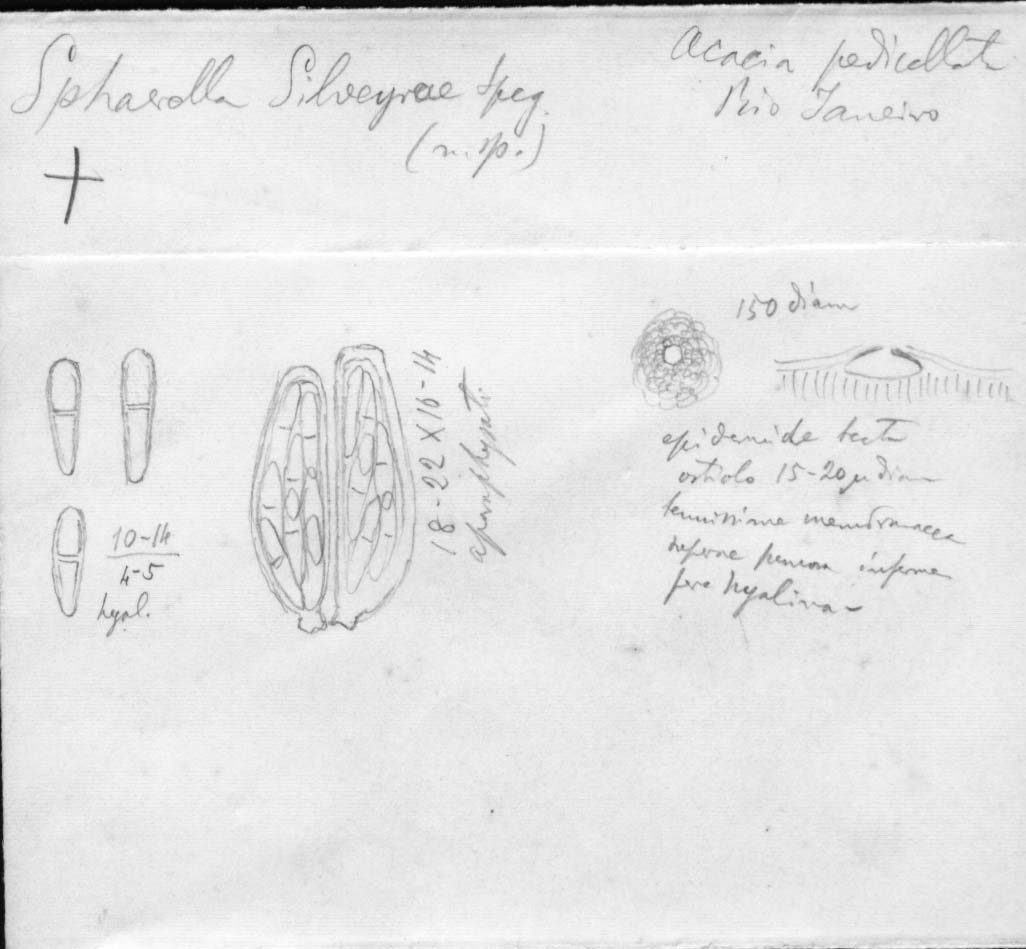 Sphaerella Silveyrae Speg.
(n. sp.)
Acacia pedicellata
Rio Janeiro
150 diam
10-14
4-5
hyal.
18-22 X 16-14
aparaphysati
epidermide tecta
ostiolo 15-20 µ diam
tenuissime membranacea
superne inferne
fere hyalina